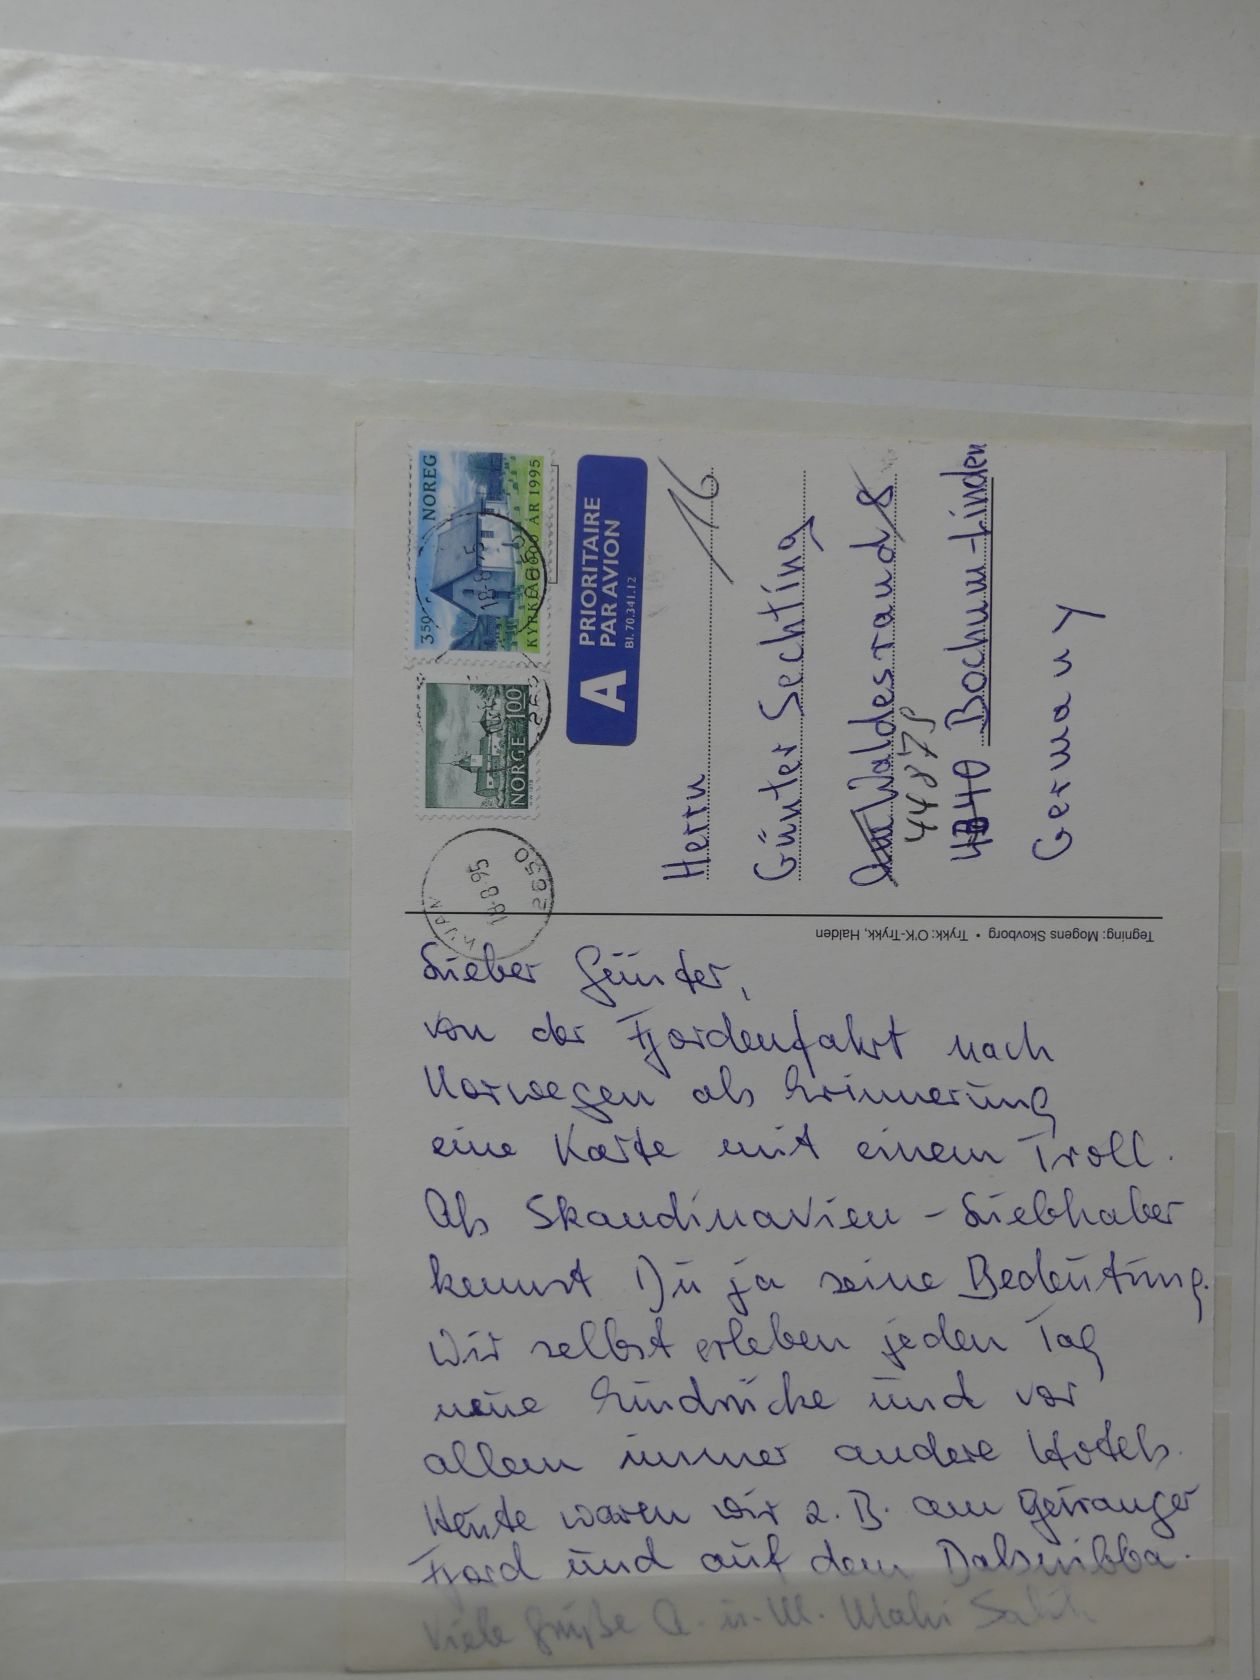 Lieber Günter,
von der Fjordenfahrt nach
Norwegen als Erinnerung
eine Karte mit einem Troll.
Als Skandinavien-Liebhaber
kennst Du ja seine Bedeutung.
Wir selbst erleben jeden Tag
neue Eindrücke und vor
allem immer andere Hotels.
Heute waren wir z. B. am Geiranger
Fjord und auf dem Dalsnibba.
Viele Grüße A. u. M.
Tegning: Mogens Skovborg • Trykk: O'K-Trykk, Halden
18-8-95
2630
NORGE 100
350 NOREG
18-8-95
KYRKJA 1000 ÅR 1995
A PRIORITAIRE
PAR AVION
Bl. 70.341.12
Herrn 16
Günter Sechting
Am Waldesrand 8
44879
4340 Bochum-Linden
Germany